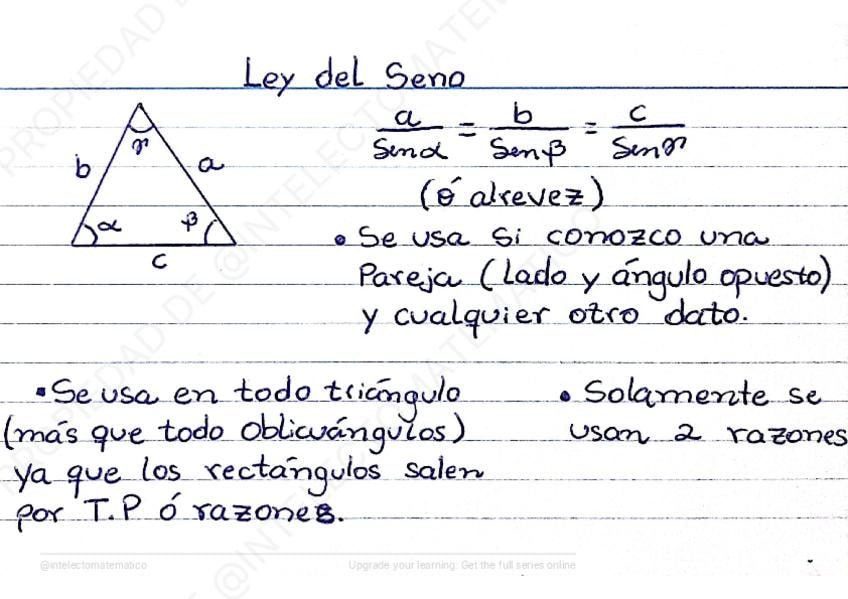 Ley del Seno
a/Senα = b/Senβ = c/Senγ
(ó alrevez)
γ
b
a
α
β
c
• Se usa si conozco una
Pareja (lado y ángulo opuesto)
y cualquier otro dato.
• Se usa en todo triángulo
(más que todo oblicuángulos)
ya que los rectángulos salen
por T.P ó razones.
• Solamente se
usan 2 razones
@intelectomatematico
Upgrade your learning: Get the full series online
PROPIEDAD DE @INTELECTOMATEMATICO